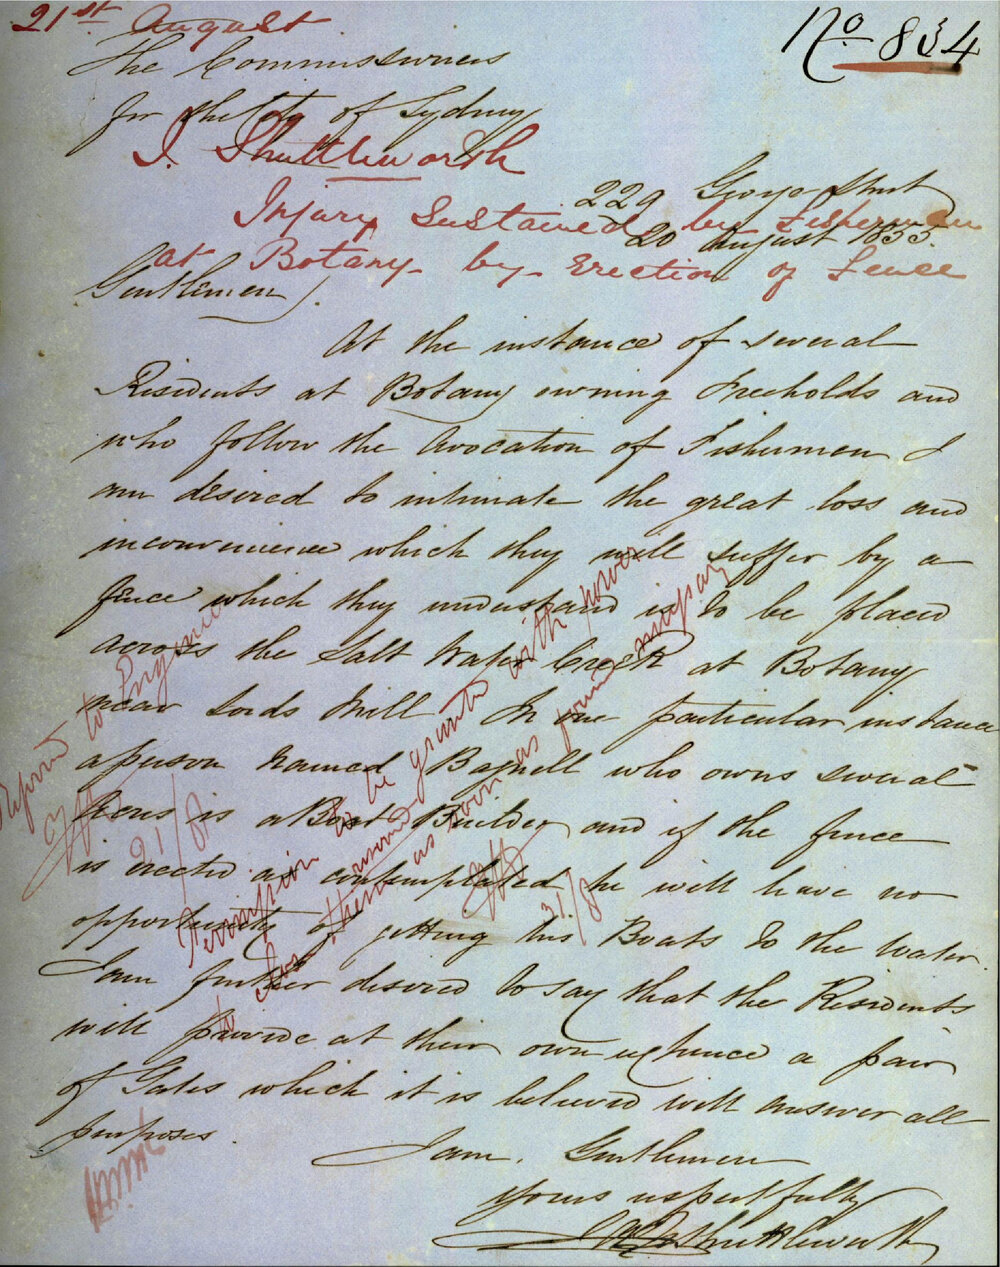 21st August
No 834
The Commissioners
for the City of Sydney
J. Shuttleworth
229 George Street
Injury Sustained by Fishermen
20 August 1855.
at Botany by Erection of Fence
Gentlemen,
At the instance of several
Residents at Botany owning Freeholds and
who follow the avocation of Fishermen I
am desired to intimate the great loss and
inconvenience which they will suffer by a
fence which they understand is to be placed
across the Salt Water Creek at Botany
near Lords Mill. In one particular instance
a person named Bagnell who owns several
acres is a Boat Builder and if the fence
is erected as contemplated he will have no
opportunity of getting his Boats to the Water.
I am further desired to say that the Residents
will provide at their own expence a pair
of Gates which it is believed will answer all
purposes.
I am, Gentlemen
Yours respectfully
Shuttleworth
Report to Engineer
21/8
Permission to be granted with power
to as soon as found necessary
31/8